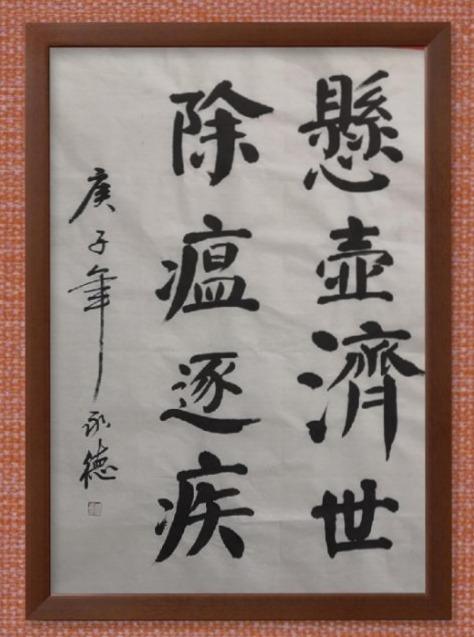 懸壺濟世
除瘟逐疾
庚子年 永德